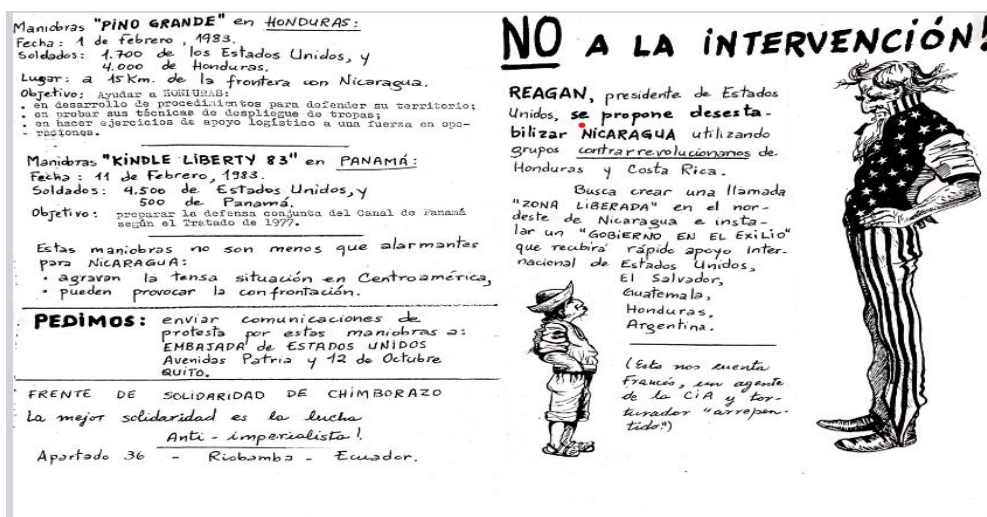 Maniobras "PINO GRANDE" en HONDURAS:
Fecha: 1 de febrero, 1983.
Soldados: 1.700 de los Estados Unidos, y
4.000 de Honduras.
Lugar: a 15 Km. de la frontera con Nicaragua.
Objetivo: Ayudar a HONDURAS:
• en desarrollo de procedimientos para defender su territorio;
• en probar sus técnicas de despliegue de tropas;
• en hacer ejercicios de apoyo logístico a una fuerza en ope-
raciones.
Maniobras "KINDLE LIBERTY 83" en PANAMÁ:
Fecha: 11 de Febrero, 1983.
Soldados: 4.500 de Estados Unidos, y
500 de Panamá.
Objetivo: preparar la defensa conjunta del Canal de Panamá
según el Tratado de 1977.
Estas maniobras no son menos que alarmantes
para NICARAGUA:
• agravan la tensa situación en Centroamérica,
• pueden provocar la confrontación.
PEDIMOS: enviar comunicaciones de
protesta por estas maniobras a:
EMBAJADA de ESTADOS UNIDOS
Avenidas Patria y 12 de Octubre
QUITO.
FRENTE DE SOLIDARIDAD DE CHIMBORAZO
La mejor solidaridad es la lucha
Anti-imperialista!
Apartado 36 - Riobamba - Ecuador.
NO A LA INTERVENCIÓN!
REAGAN, presidente de Estados
Unidos, se propone desesta-
bilizar NICARAGUA utilizando
grupos contrarrevolucionarios de
Honduras y Costa Rica.
Busca crear una llamada
"ZONA LIBERADA" en el nor-
deste de Nicaragua e insta-
lar un "GOBIERNO EN EL EXILIO"
que recibirá rápido apoyo inter-
nacional de Estados Unidos,
El Salvador,
Guatemala,
Honduras,
Argentina.
(Esto nos cuenta
Francés, un agente
de la CIA y tor-
turador "arrepen-
tido.")